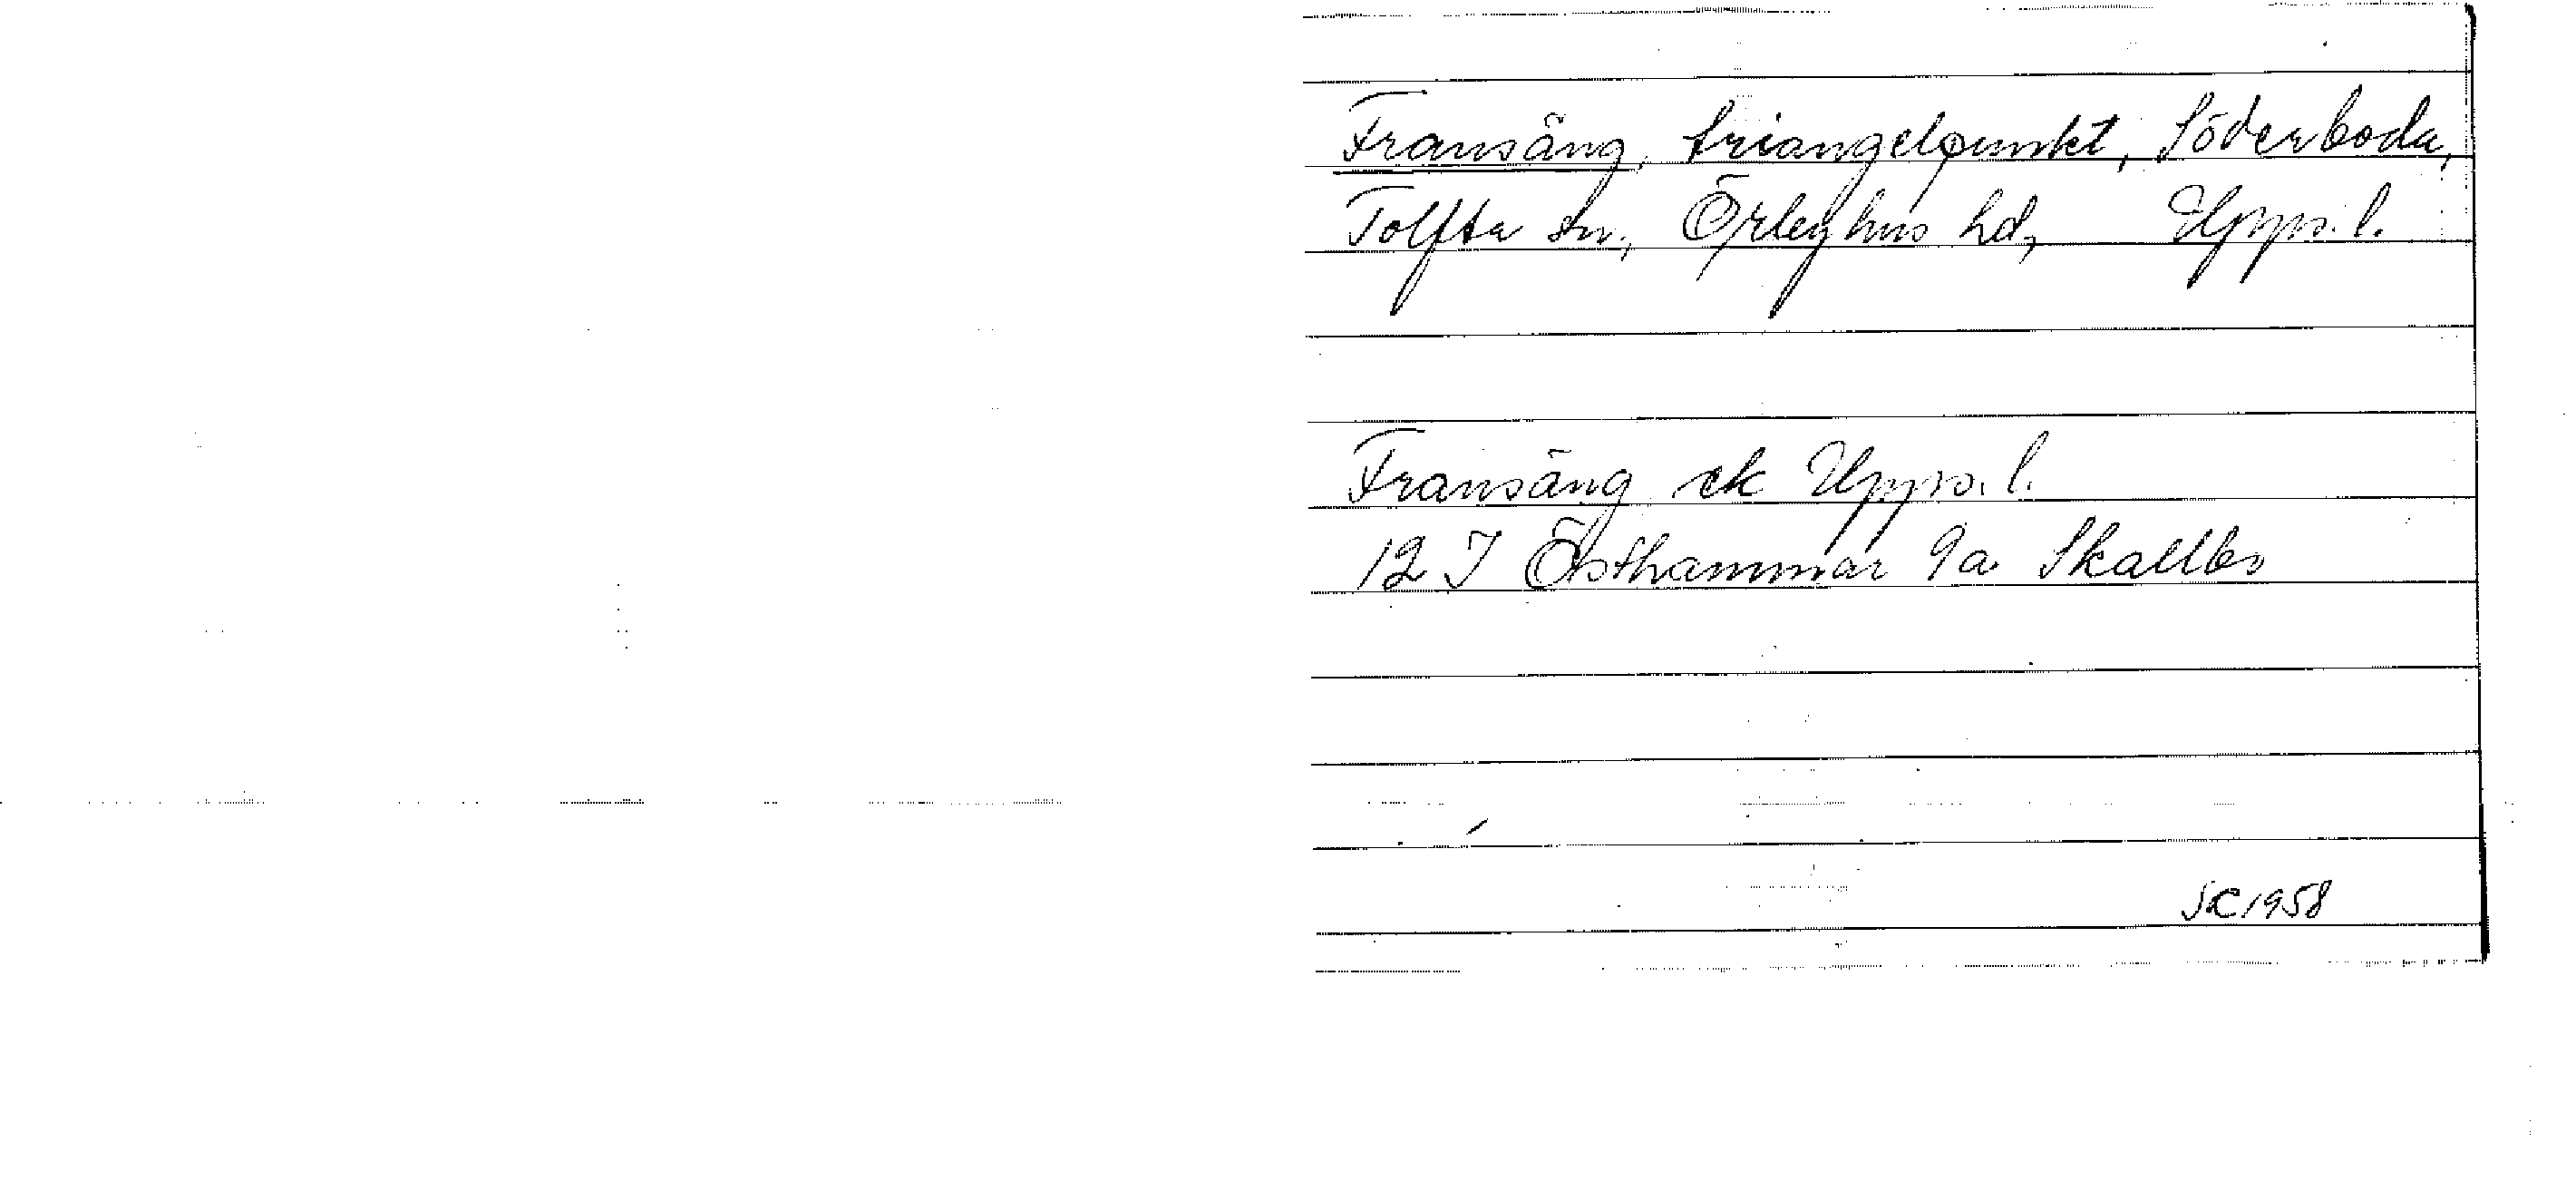 Fransäng, triangelpunkt, Söderboda,
Tolfta sn, Örbyhus hd, Upps. l.
Fransäng ek Upps. l.
12 I Östhammar 9a Skallbo
SC 1958